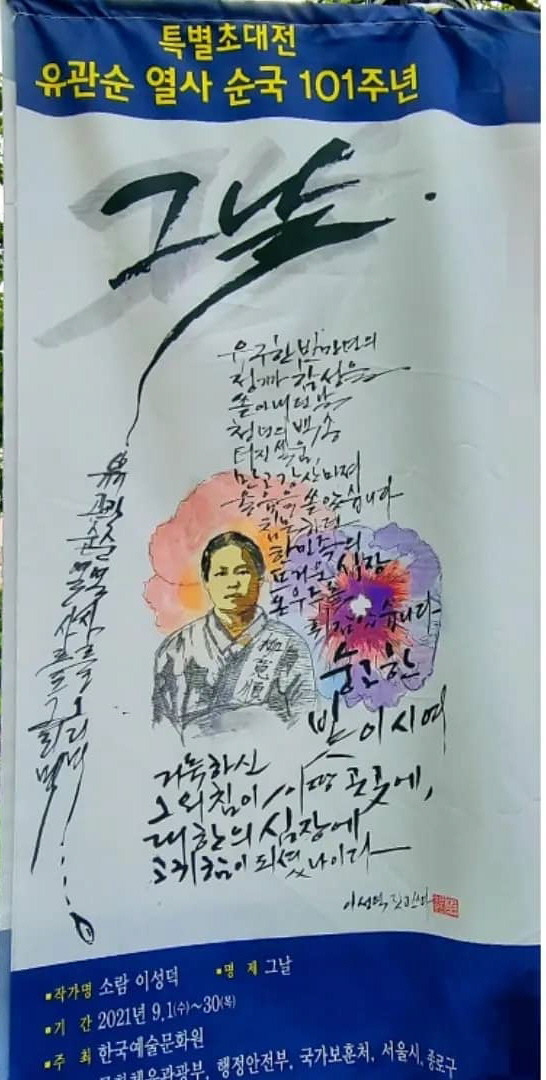 특별초대전
유관순 열사 순국 101주년
그날.
유구한 반만년의
정까 감성을
쏟아내던 날
청년의 백송
터지
만고강산마져
울음을 쏟았습니다
침묵하던
한민족의
뜨거운 심장
온우주를
휘감았습니다
숭고한
빛이시여
거룩하신
그 외침이 이땅 곳곳에,
대한의 심장에
이성덕 짓고쓰다
유관순 열사를 그리며
순열
柳寬順
▪작가명 소람 이성덕 ▪명 제 그날
▪기 간 2021년 9.1(수)~30(목)
▪주 최 한국예술문화원
문화체육관광부, 행정안전부, 국가보훈처, 서울시, 종로구